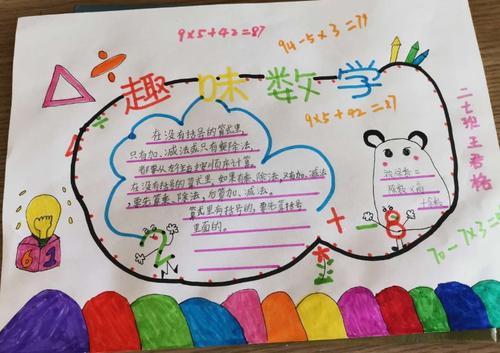 9×5+42=87
94-5×3=79
趣味数学
9×5+42=87
二七班王君格
在没有括号的算式里,
只有加、减法或只有乘除法,
都要从左往右按顺序计算。
在没有括号的算式里,如果有乘、除法,又有加、减法
要先算乘、除法,后算加、减法。
算式里有括号的,要先算括号
里面的。
被除数=
除数×商
+余数
2
+-8
70-7×3=
6 1